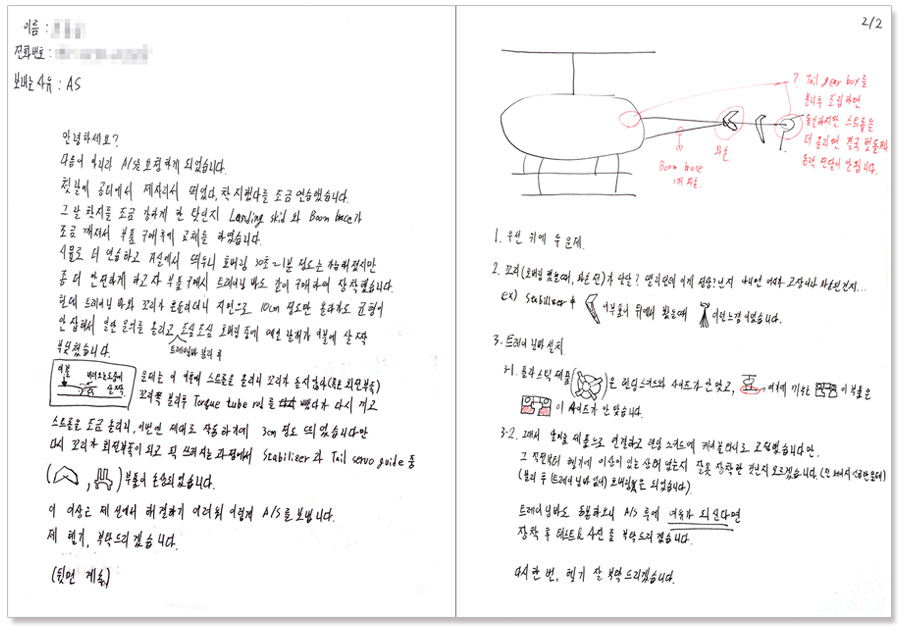 이름 :
전화번호 :
보내는 사유 : AS
안녕하세요?
다름이 아니라 A/S를 요청하게 되었습니다.
첫 날에 공터에서 제자리서 띄었다, 착지했다를 조금 연습했습니다.
그 날 착지를 조금 강하게 한 탓인지 Landing skid 와 Boom brace가
조금 깨져서 부품 구매후에 교체를 하였습니다.
선물로 더 연습하고 거실에서 띄우니 호버링 30초~1분 정도는 가능해졌지만
좀 더 안전하게 하고자 부품 구매서 트레이닝 바도 같이 구매하여 장착했습니다.
헌데 트레이닝 바와 꼬리가 흔들리더니 지면으로 10cm 정도만 올라가도 균형이
안 잡혀서 일단 문의를 올리고 조심조심 호버링 중에 메인 날개가 이불에 살짝
트레이닝바 분리 후
부딪쳤습니다.
이불
내려오는도중에 살짝
문제는 이 직후에 스트롤을 올리니 꼬리가 돌지않아 (혹은 회전부족)
꼬리쪽 분리후 Torque tube rod를 뺐다가 다시 끼고
스트롤을 조금 올리니, 이번엔 제대로 작동하기에 3cm 정도 띄었습니다만
다시 꼬리가 회전부족이 되고 픽 쓰러지는 과정에서 Stabilizer와 Tail servo guide 중
( , ) 부품이 손상되었습니다.
이 이상은 제 선에서 해결하기 어려워 이렇게 A/S를 보냅니다.
제 헬기, 부탁드리겠습니다.
(뒷면 계속)
2/2
? Tail gear box를
분리후 조립하면
돌긴하지만 스트롤을
더 올리면 결국 멋돌거나
동력 전달이 안됩니다.
파손
Boom brace
1개 파손.
1. 우선 위에 두 문제.
2. 꼬리(호버링 했는데, 파손 전)가 산산? 떨리던데 이게 정상?인지 아니면 어디가 고장이나 파손된건지...
ex) Stabilizer 이부분이 뒤에서 봤을때 이런느낌이었습니다.
3. 트레이닝바 설치
3-1. 플라스틱 제품 은 랜딩 스키드와 사이즈가 안 맞고, 여기에 끼우는 이 부분은
이 사이즈가 안 맞습니다.
3-2. 그래서 알미늄 제품으로 연결하고 랜딩 스키드에 케이블타이로 고정했습니다만,
그 직전부터 헬기에 이상이 있는 상태였는지 잘못 장착한 것인지 모르겠습니다.
(분리 후 (트레이닝바 없이) 호버링은 되었습니다.)
트레이닝바도 동봉하오니 A/S 후에 여유가 되신다면
장착 후 테스트& 사진 좀 부탁드리겠습니다.
다시 한 번, 헬기 잘 부탁드리겠습니다.